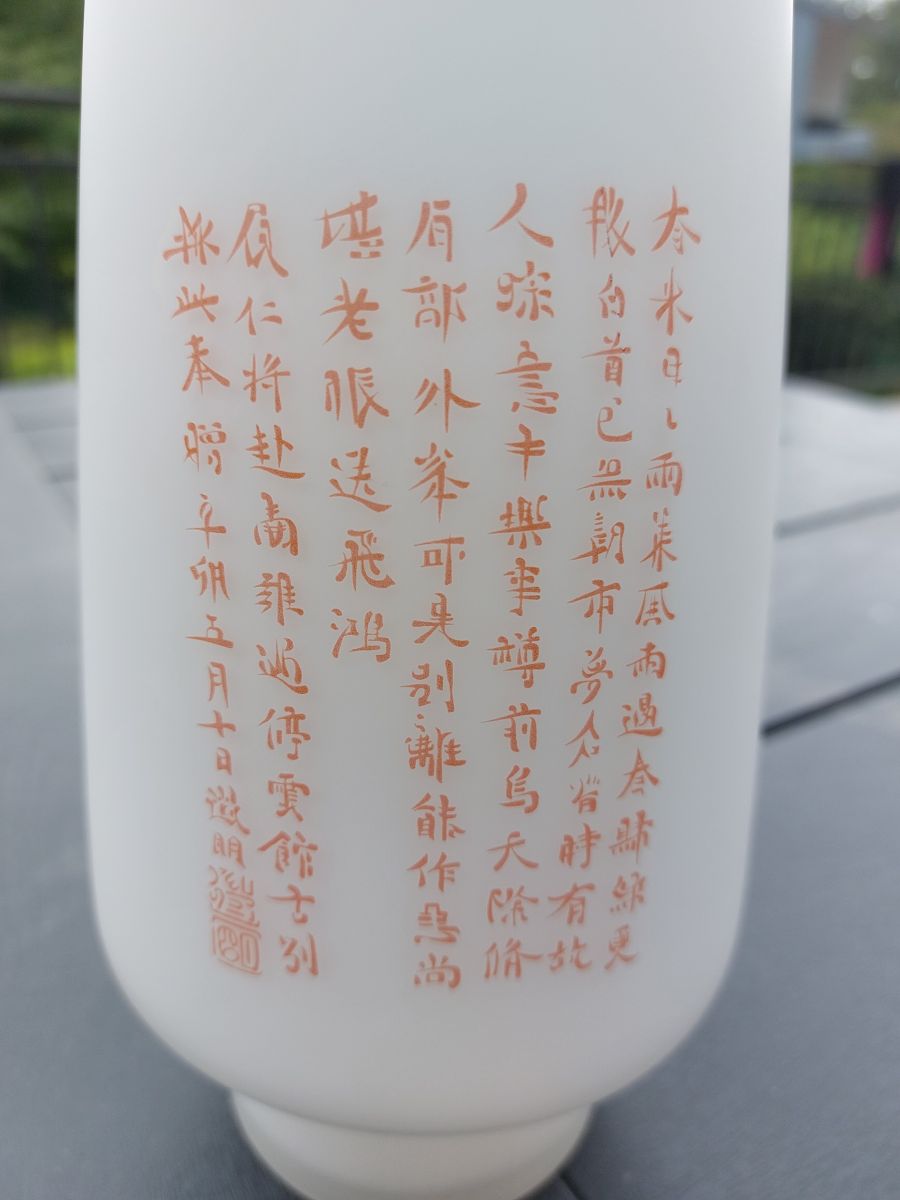 春来日〻雨兼風雨過春歸綠更
穠白首已無朝市夢蒼苔時有故
人蹤意中樂事樽前鳥天際脩
眉郭外峯可是別離能作惡尚
堪老眼送飛鴻
履仁將赴南雍過停雲館言別
賦此奉贈辛卯五月十日徵明